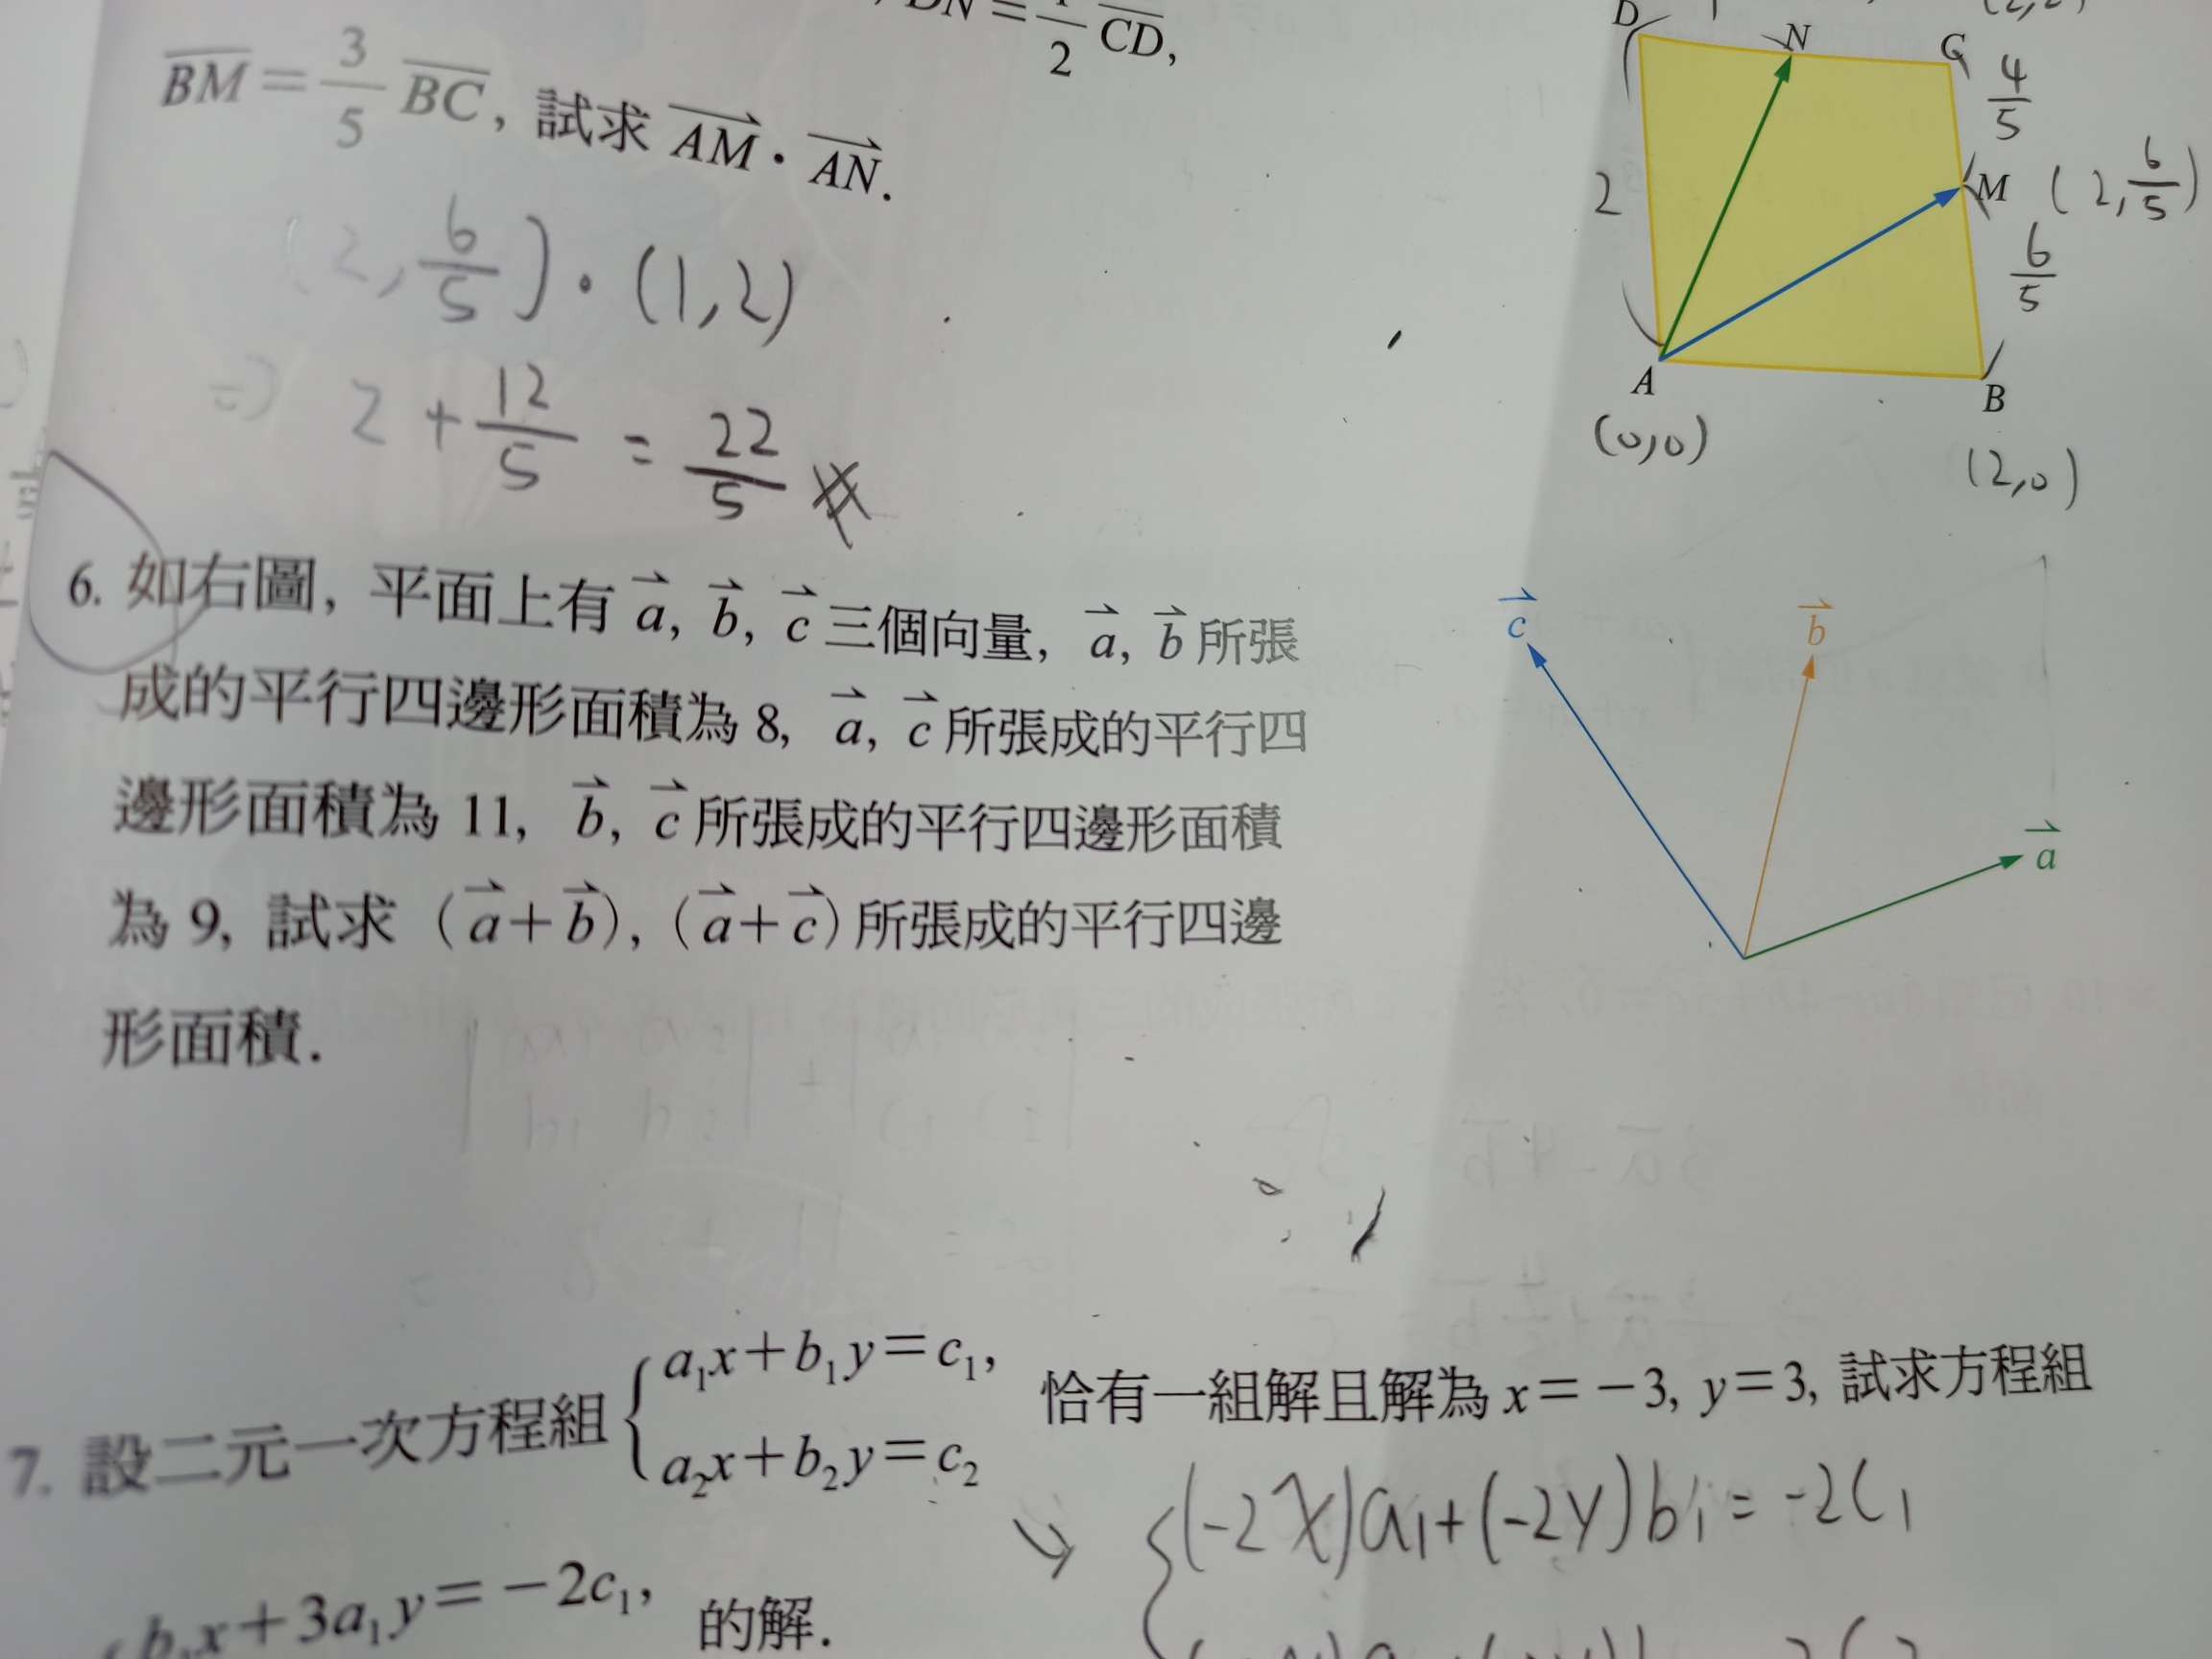 DN = 1/2 CD,
BM = 3/5 BC, 試求 AM · AN.
(2, 6/5) · (1, 2)
⇒ 2 + 12/5 = 22/5
D N C
4/5
2 M (2, 6/5)
6/5
A B
(0,0) (2,0)
6. 如右圖, 平面上有 a, b, c 三個向量, a, b 所張
成的平行四邊形面積為 8, a, c 所張成的平行四
邊形面積為 11, b, c 所張成的平行四邊形面積
為 9, 試求 (a+b), (a+c) 所張成的平行四邊
形面積.
c b
a
7. 設二元一次方程組 { a₁x+b₁y=c₁, a₂x+b₂y=c₂ 恰有一組解且解為 x=−3, y=3, 試求方程組
{(-2x)a₁+(-2y)b₁=-2c₁
x+3a₁y=−2c₁, 的解.